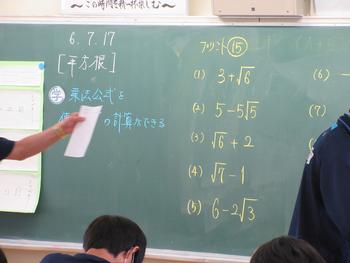 ～この時間を精一杯楽しむ～
6.7.17
[平方根]
学 乗法公式を
の計算ができる
プリント⑮
(1) 3+√6
(2) 5-5√5
(3) √6+2
(4) √7-1
(5) 6-2√3
(6) -
(7)